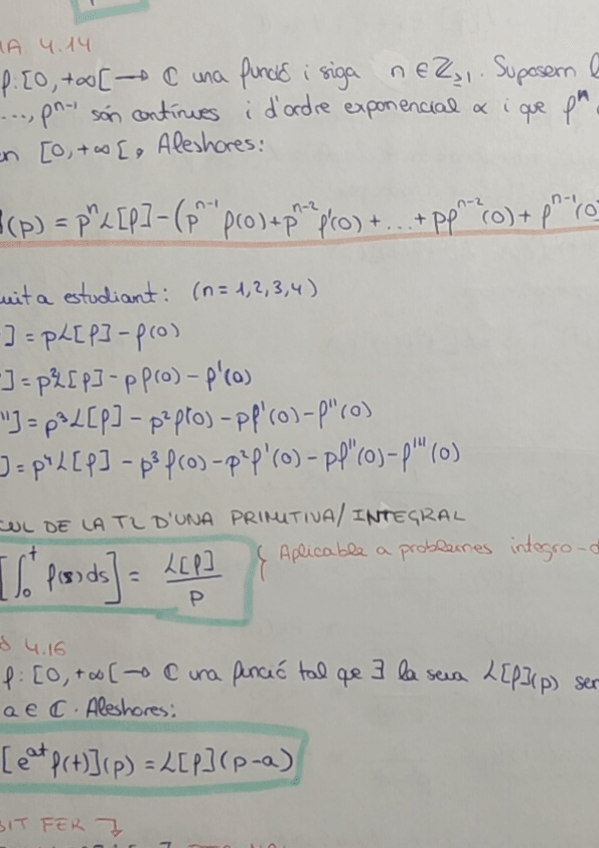 MA 4.14
f: [0, +∞[ → ℂ una funció i siga n ∈ ℤ≥1. Suposem
..., fⁿ⁻¹ són contínues i d'ordre exponencial α i que fⁿ
en [0, +∞[, Aleshores:
](p) = pⁿ ℒ[f] - (pⁿ⁻¹ f(0) + pⁿ⁻² f'(0) + ... + p fⁿ⁻²(0) + fⁿ⁻¹(0)
estudiant: (n = 1,2,3,4)
] = pℒ[f] - f(0)
'] = p²ℒ[f] - pf(0) - f'(0)
'''] = p³ℒ[f] - p²f(0) - pf'(0) - f''(0)
] = p⁴ℒ[f] - p³f(0) - p²f'(0) - pf''(0) - f'''(0)
CUL DE LA TL D'UNA PRIMITIVA/INTEGRAL
[∫₀ᵗ f(s)ds] = ℒ[f] / p { Aplicable a problemes integro-d
4.16
f: [0, +∞[ → ℂ una funció tal que ∃ la seua ℒ[f](p)
a ∈ ℂ. Aleshores:
[eᵃᵗ f(t)](p) = ℒ[f](p-a)
FER